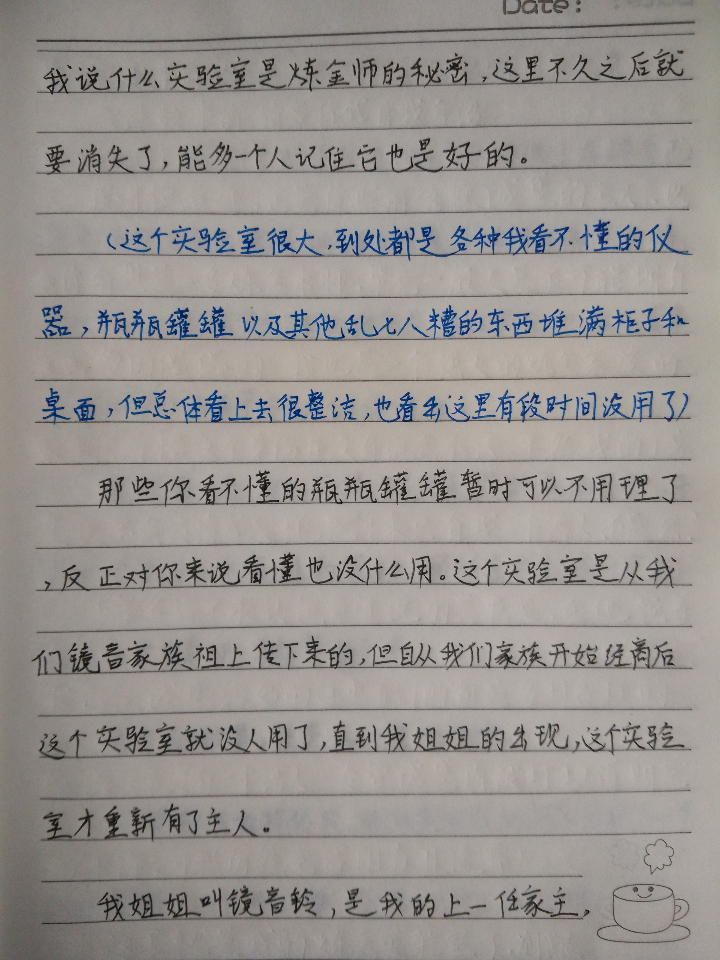 Date:
我说什么实验室是炼金师的秘密，这里不久之后就
要消失了，能多一个人记住它也是好的。
（这个实验室很大，到处都是各种我看不懂的仪
器，瓶瓶罐罐以及其他乱七八糟的东西堆满柜子和
桌面，但总体看上去很整洁，也看出这里有段时间没用了）
那些你看不懂的瓶瓶罐罐暂时可以不用理了
，反正对你来说看懂也没什么用。这个实验室是从我
们镜音家族祖上传下来的，但自从我们家族开始经商后
这个实验室就没人用了，直到我姐姐的出现，这个实验
室才重新有了主人。
我姐姐叫镜音铃，是我的上一任家主，